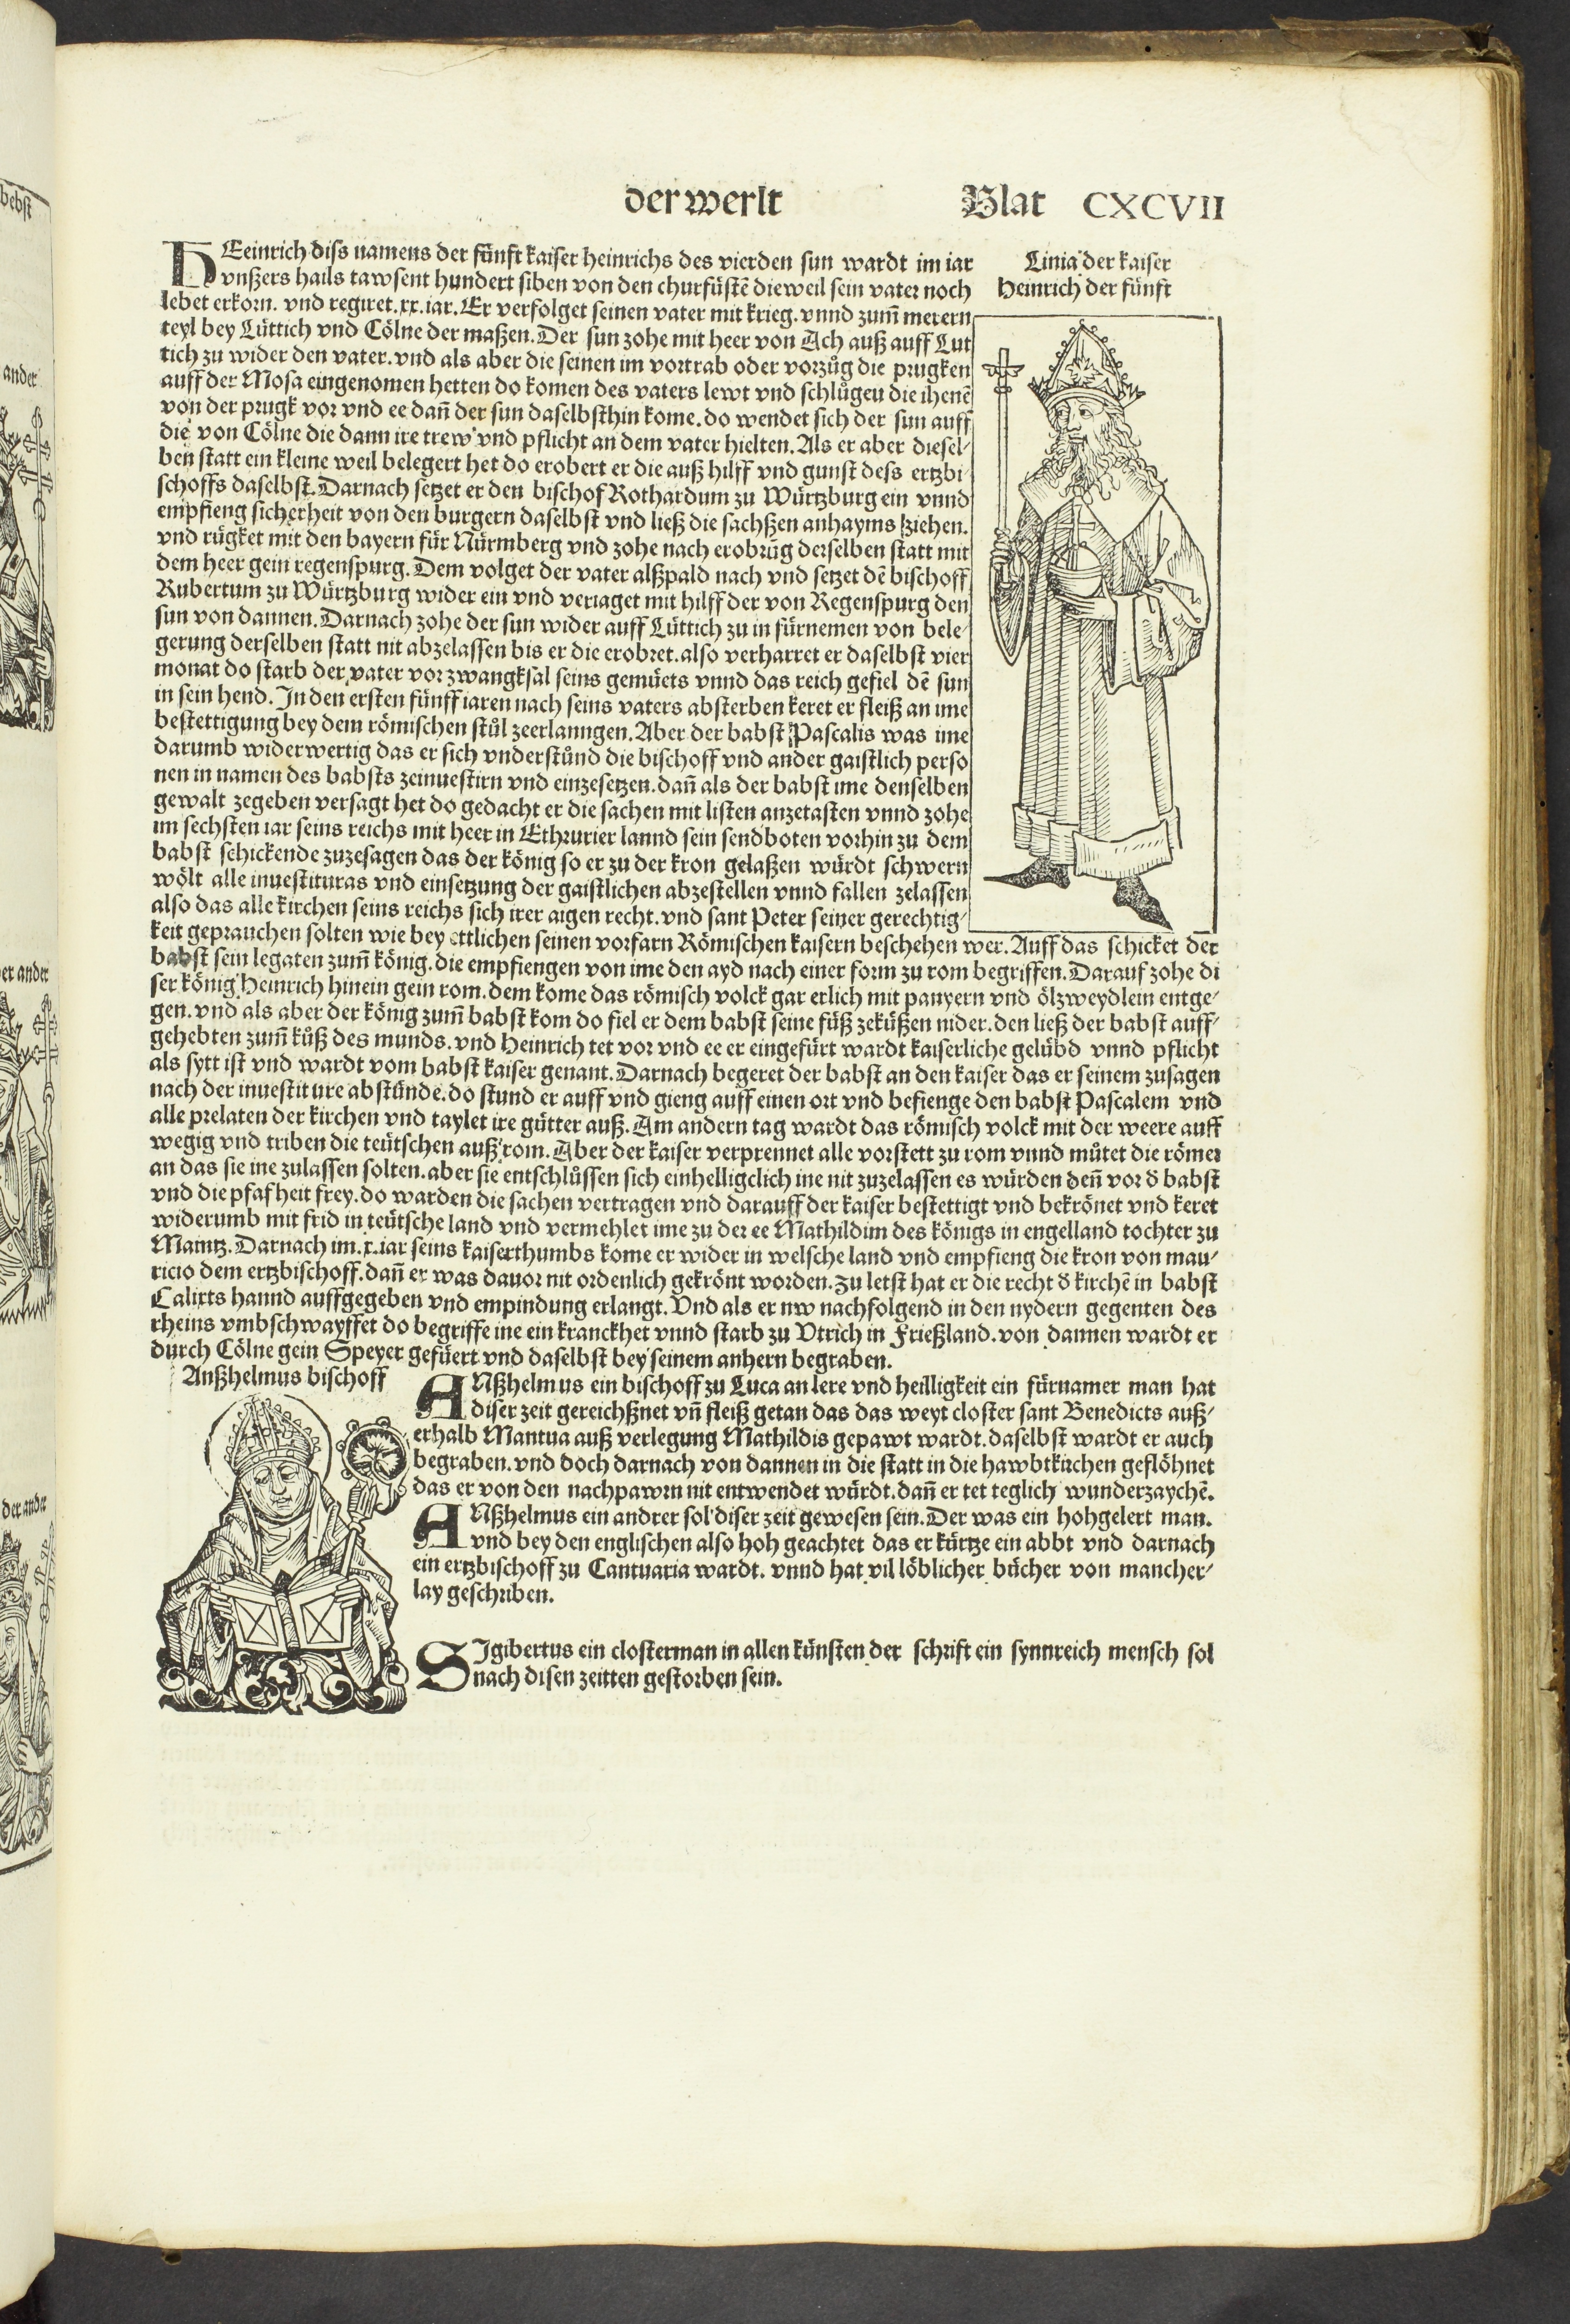 der werlt Blat CXCVII
HEeinrich diss namens der fünft kaiser heinrichs des vierden sun wardt im iar
vnßers hails tawsent hundert siben von den churfüstē dieweil sein vater noch
lebet erkorn. vnd regiret. xx. iar. Er verfolget seinen vater mit krieg. vnnd zum̄ merern
teyl bey Lüttich vnd Cölne der maßen. Der sun zohe mit heer von Ach auß auff Lut
tich zu wider den vater. vnd als aber die seinen im vortrab oder vorzůg die prugken
auff der Mosa eingenomen hetten do komen des vaters lewt vnd schlůgen die ihenē
von der prugk vor vnd ee dañ der sun daselbsthin kome. do wendet sich der sun auff
die von Cölne die dann ire trew vnd pflicht an dem vater hielten. Als er aber diesel-
ben statt ein kleine weil belegert het do erobert er die auß hilff vnd gunst dess ertzbi
schoffs daselbst. Darnach setzet er den bischof Rothardum zu Würtzburg ein vnnd
empfieng sicherheit von den burgern daselbst vnd ließ die sachßen anhayms ziehen.
vnd rügket mit den bayern für Nürmberg vnd zohe nach erobrūg derselben statt mit
dem heer gein regenspurg. Dem volget der vater alßpald nach vnd setzet dē bischoff
Rubertum zu Würtzburg wider ein vnd veriaget mit hilff der von Regenspurg den
sun von dannen. Darnach zohe der sun wider auff Lüttich zu in fürnemen von bele
gerung derselben statt nit abzelassen bis er die erobret. also verharret er daselbst vier
monat do starb der vater vor zwangksal seins gemüets vnnd das reich gefiel dē sun
in sein hend. In den ersten fünff iaren nach seins vaters absterben keret er fleiß an ime
bestettigung bey dem römischen stůl zeerlanngen. Aber der babst Pascalis was ime
darumb widerwertig das er sich vnderstůnd die bischoff vnd ander gaistlich perso
nen in namen des babsts zeinuestirn vnd einzesetzen. dañ als der babst ime denselben
gewalt zegeben versagt het do gedacht er die sachen mit listen anzetasten vnnd zohe
im sechsten iar seins reichs mit heer in Ethrurier lannd sein sendboten vorhin zu dem
babst schickende zuzesagen das der könig so er zu der kron gelaßen würdt schwern
wölt alle inuestituras vnd einsetzung der gaistlichen abzestellen vnnd fallen zelassen
also das alle kirchen seins reichs sich irer aigen recht. vnd sant Peter seiner gerechtig-
keit geprauchen solten wie bey ettlichen seinen vorfarn Römischen kaisern beschehen wer. Auff das schicket der
babst sein legaten zum̄ könig. die empfiengen von ime den ayd nach einer form zu rom begriffen. Darauf zohe di
ser könig Heinrich hinein gein rom. dem kome das römisch volck gar erlich mit panyern vnd ölzweydlein entge-
gen. vnd als aber der könig zum̄ babst kom do fiel er dem babst seine füß zeküßen nider. den ließ der babst auff-
gehebten zum̄ kůß des munds. vnd Heinrich tet vor vnd ee er eingefürt wardt kaiserliche gelübd vnnd pflicht
als sytt ist vnd wardt vom babst kaiser genant. Darnach begeret der babst an den kaiser das er seinem zusagen
nach der inuestiture abstünde. do stund er auff vnd gieng auff einen ort vnd befienge den babst Pascalem vnd
alle prelaten der kirchen vnd taylet ire gütter auß. Am andern tag wardt das römisch volck mit der weere auff
wegig vnd triben die teütschen auß rom. Aber der kaiser verprennet alle vorstett zu rom vnnd můtet die römer
an das sie ine zulassen solten. aber sie entschlůssen sich einhelligclich ine nit zuzelassen es würden deñ vor d̄ babst
vnd die pfafheit frey. do warden die sachen vertragen vnd darauff der kaiser bestettigt vnd bekrönet vnd keret
widerumb mit frid in teütsche land vnd vermehlet ime zu der ee Mathildim des königs in engelland tochter zu
Maintz. Darnach im. x. iar seins kaiserthumbs kome er wider in welsche land vnd empfieng die kron von mau-
ricio dem ertzbischoff. dañ er was dauor nit ordenlich gekrönt worden. Zu letst hat er die recht d̄ kirchē in babst
Calixts hannd auffgegeben vnd empindung erlangt. Vnd als er nw nachfolgend in den nydern gegenten des
rheins vmbschwayffet do begriffe ine ein kranckhet vnnd starb zu Vtrich in Frießland. von dannen wardt er
durch Cölne gein Speyer gefüert vnd daselbst bey seinem anhern begraben.
Linia der kaiser
Heinrich der fünft
Anßhelmus bischoff
ANßhelmus ein bischoff zu Luca an lere vnd heilligkeit ein fürnamer man hat
diser zeit gereichßnet vñ fleiß getan das das weyt closter sant Benedicts auß-
erhalb Mantua auß verlegung Mathildis gepawt wardt. daselbst wardt er auch
begraben. vnd doch darnach von dannen in die statt in die hawbtkirchen geflöhnet
das er von den nachpawrn nit entwendet würdt. dañ er tet teglich wunderzaychē.
ANßhelmus ein andrer sol diser zeit gewesen sein. Der was ein hohgelert man.
vnd bey den englischen also hoh geachtet das er kürtze ein abbt vnd darnach
ein ertzbischoff zu Cantuaria wardt. vnnd hat vil löblicher bücher von mancher-
lay geschriben.
SIgibertus ein closterman in allen künsten der schrift ein synnreich mensch sol
nach disen zeitten gestorben sein.
bebst
ander
er ander
der ander